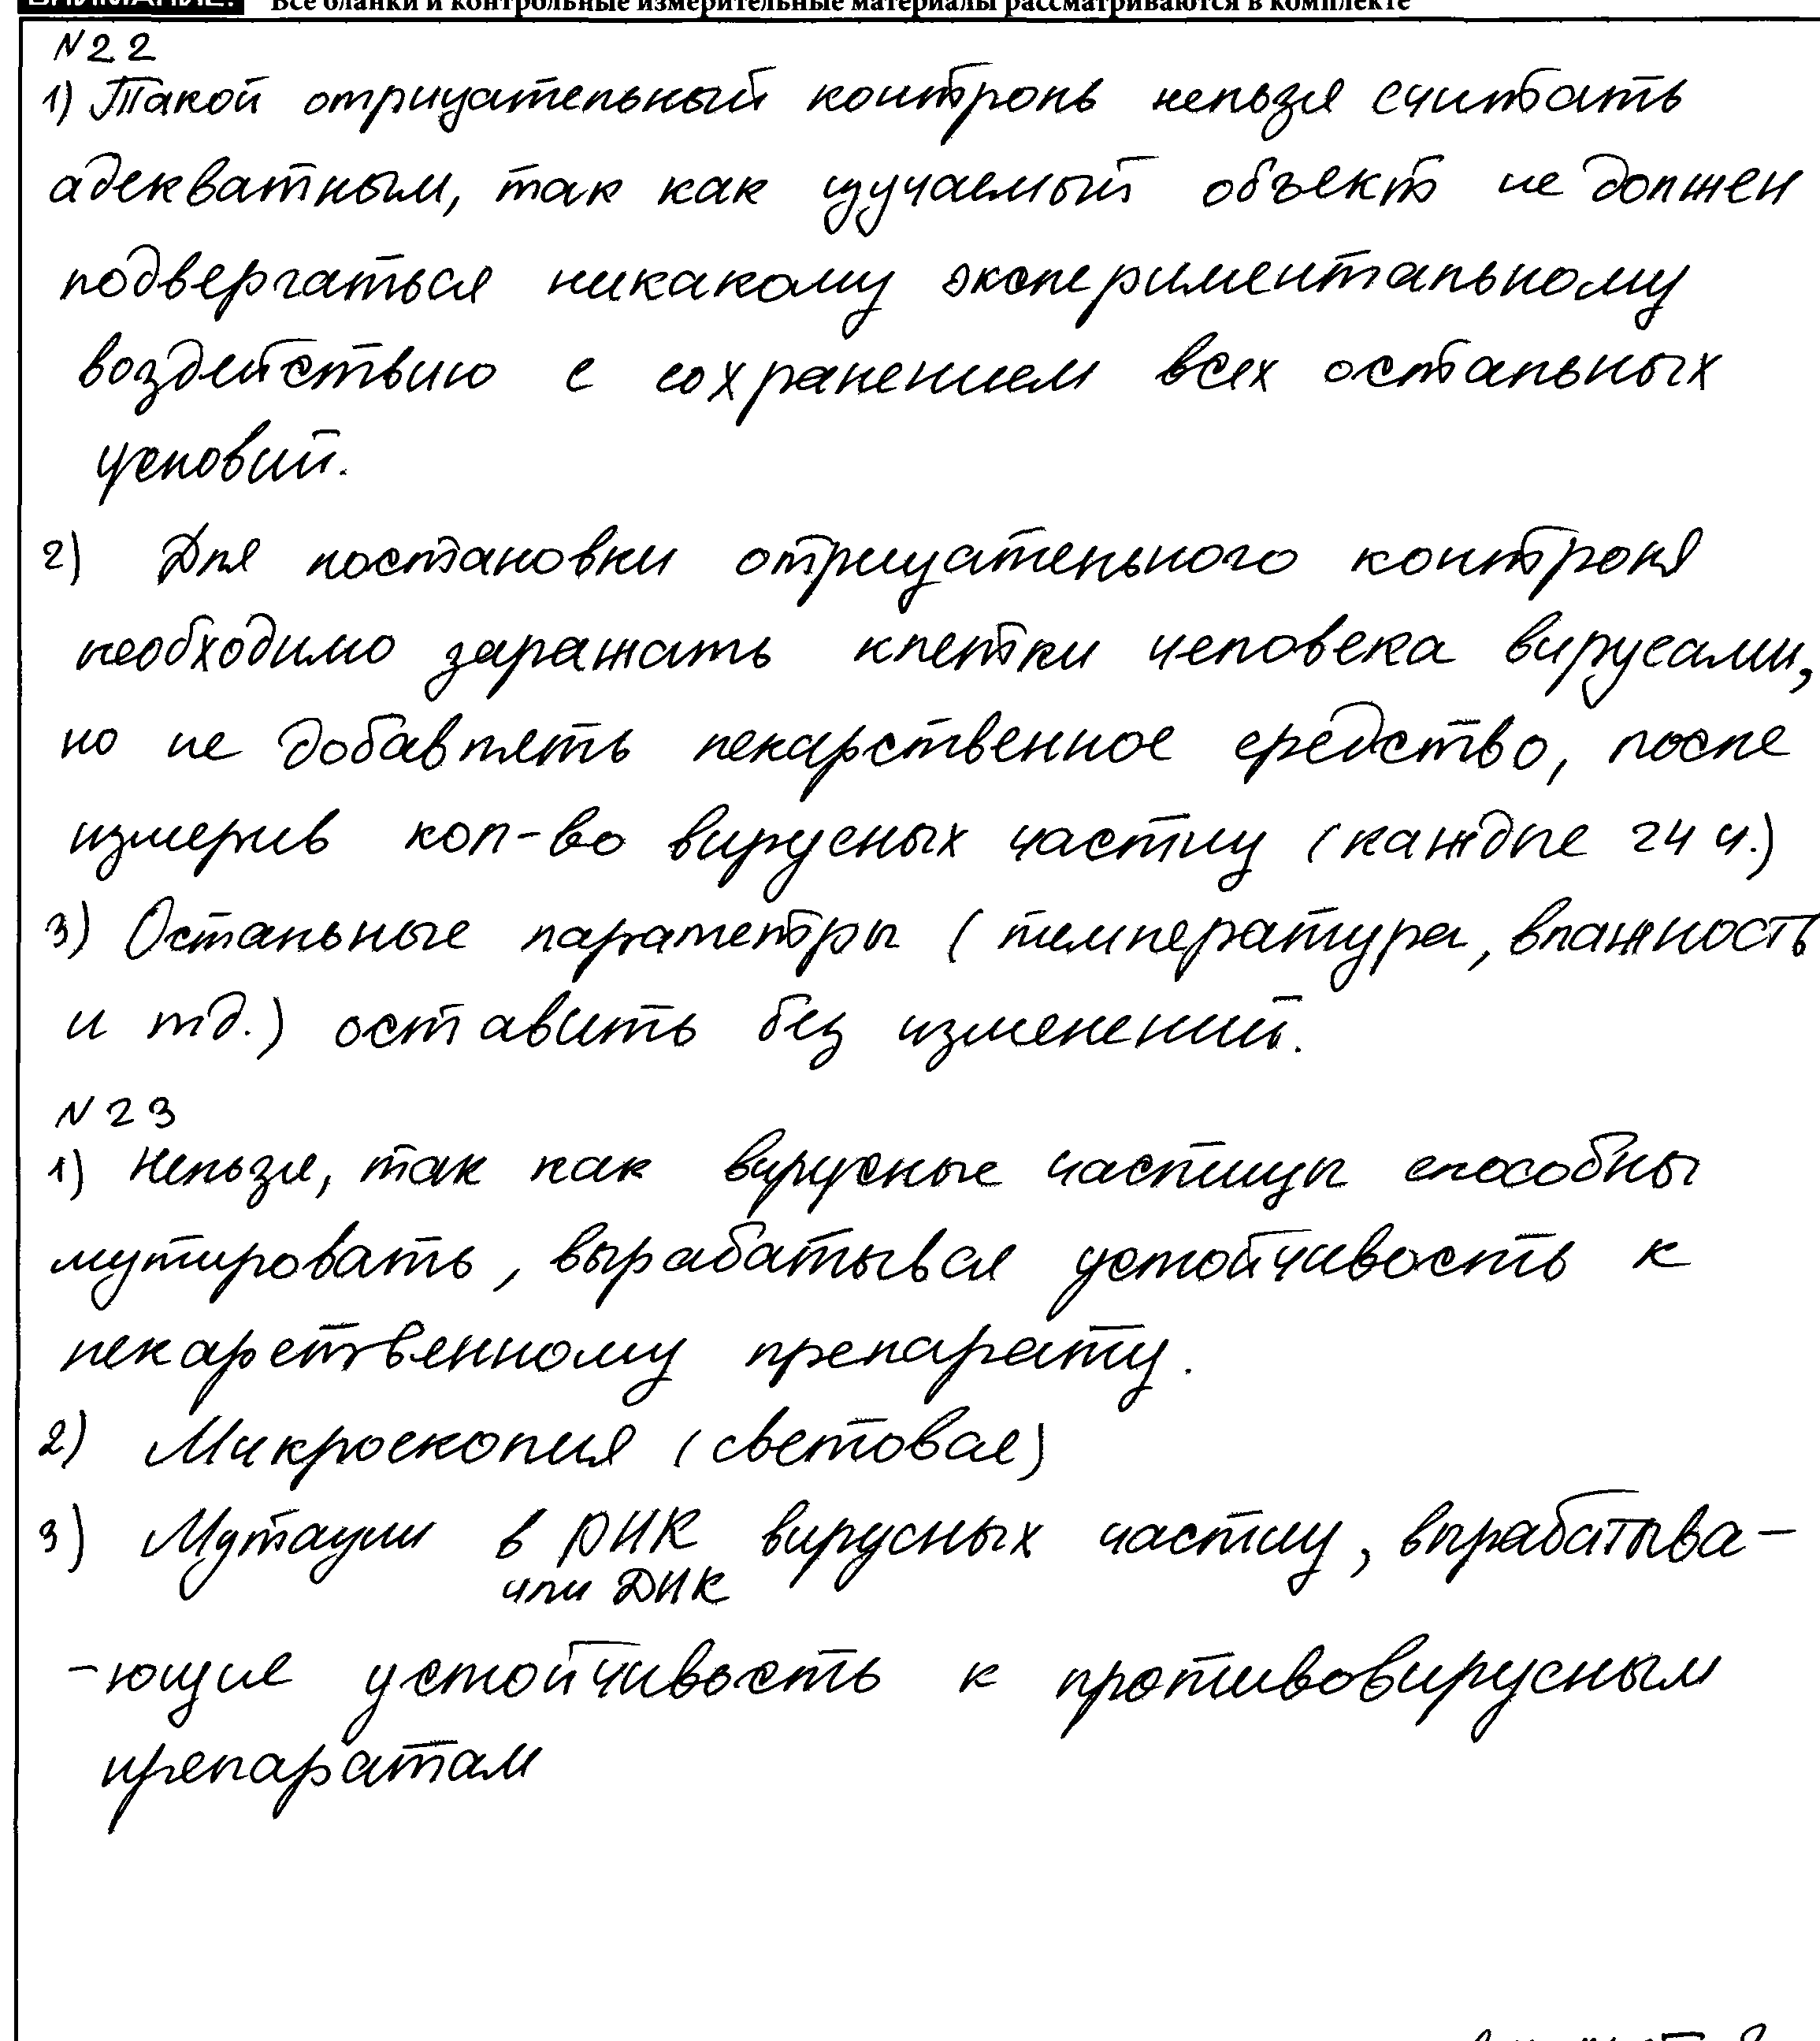 ВНИМАНИЕ! Все бланки и контрольные измерительные материалы рассматриваются в комплекте
№22
1) Такой отрицательный контроль нельзя считать
адекватным, так как изучаемый объект не должен
подвергаться никакому экспериментальному
воздействию с сохранением всех остальных
условий.
2) Для постановки отрицательного контроля
необходимо заражать клетки человека вирусами,
но не добавлять лекарственное средство, после
измерив кол-во вирусных частиц (каждые 24 ч.)
3) Остальные параметры (температура, влажность
и тд.) оставить без изменений.
№23
1) Нельзя, так как вирусные частицы способны
мутировать, вырабатывая устойчивость к
лекарственному препарату.
2) Микроскопия (световая)
3) Мутации в РНК вирусных частиц, вырабатыва-
или ДНК
-ющие устойчивость к противовирусным
препаратам